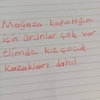 Mağaza kapattığım
için ürünler çok var
Elimde kız çocuk
kazakları dahil